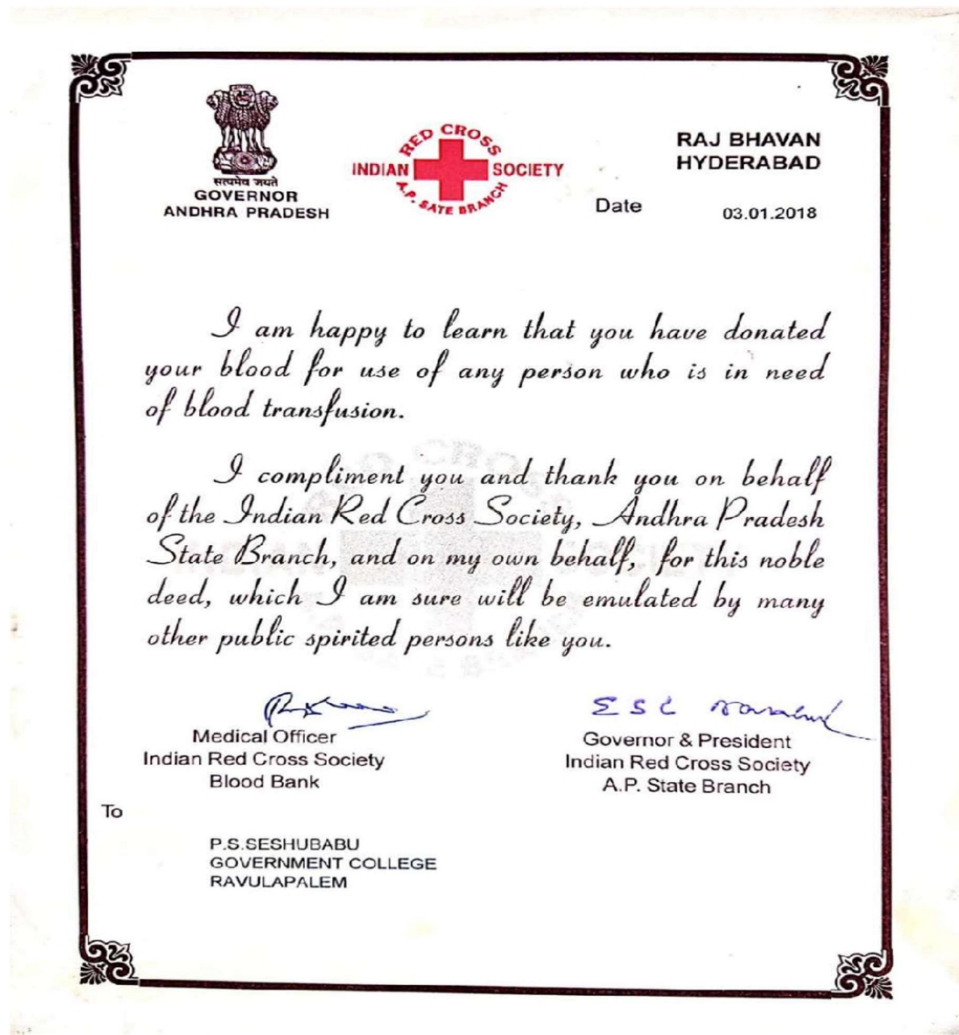 सत्यमेव जयते
GOVERNOR
ANDHRA PRADESH
RED CROSS
INDIAN SOCIETY
A.P. SATE BRANCH
RAJ BHAVAN
HYDERABAD
Date 03.01.2018
I am happy to learn that you have donated
your blood for use of any person who is in need
of blood transfusion.
I compliment you and thank you on behalf
of the Indian Red Cross Society, Andhra Pradesh
State Branch, and on my own behalf, for this noble
deed, which I am sure will be emulated by many
other public spirited persons like you.
Medical Officer
Indian Red Cross Society
Blood Bank
E S L
Governor & President
Indian Red Cross Society
A.P. State Branch
To
P.S.SESHUBABU
GOVERNMENT COLLEGE
RAVULAPALEM